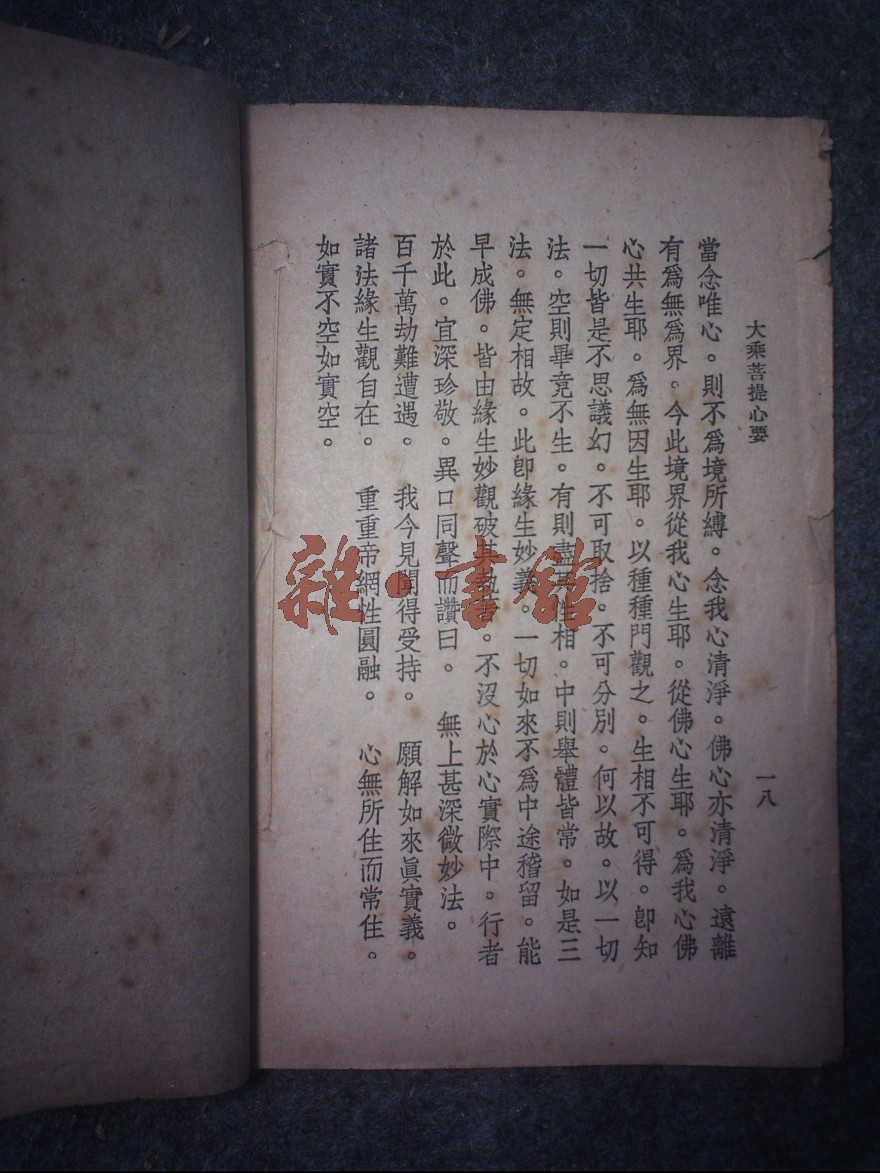 大乘菩提心要
一八
當念唯心。則不爲境所縛。念我心清淨。佛心亦清淨。遠離
有爲無爲界。今此境界從我心生耶。從佛心生耶。爲我心佛
心共生耶。爲無因生耶。以種種門觀之。生相不可得。卽知
一切皆是不思議幻。不可取捨。不可分別。何以故。以一切
法。空則畢竟不生。有則盡性相。中則舉體皆常。如是三
法。無定相故。此卽緣生妙義。一切如來不爲中途稽留。能
早成佛。皆由緣生妙觀破其執著。不沒心於心實際中。行者
於此。宜深珍敬。異口同聲而讚曰。 無上甚深微妙法。
百千萬劫難遭遇。 我今見聞得受持。 願解如來眞實義。
諸法緣生觀自在。 重重帝網性圓融。 心無所住而常住。
如實不空如實空。
雜·書館